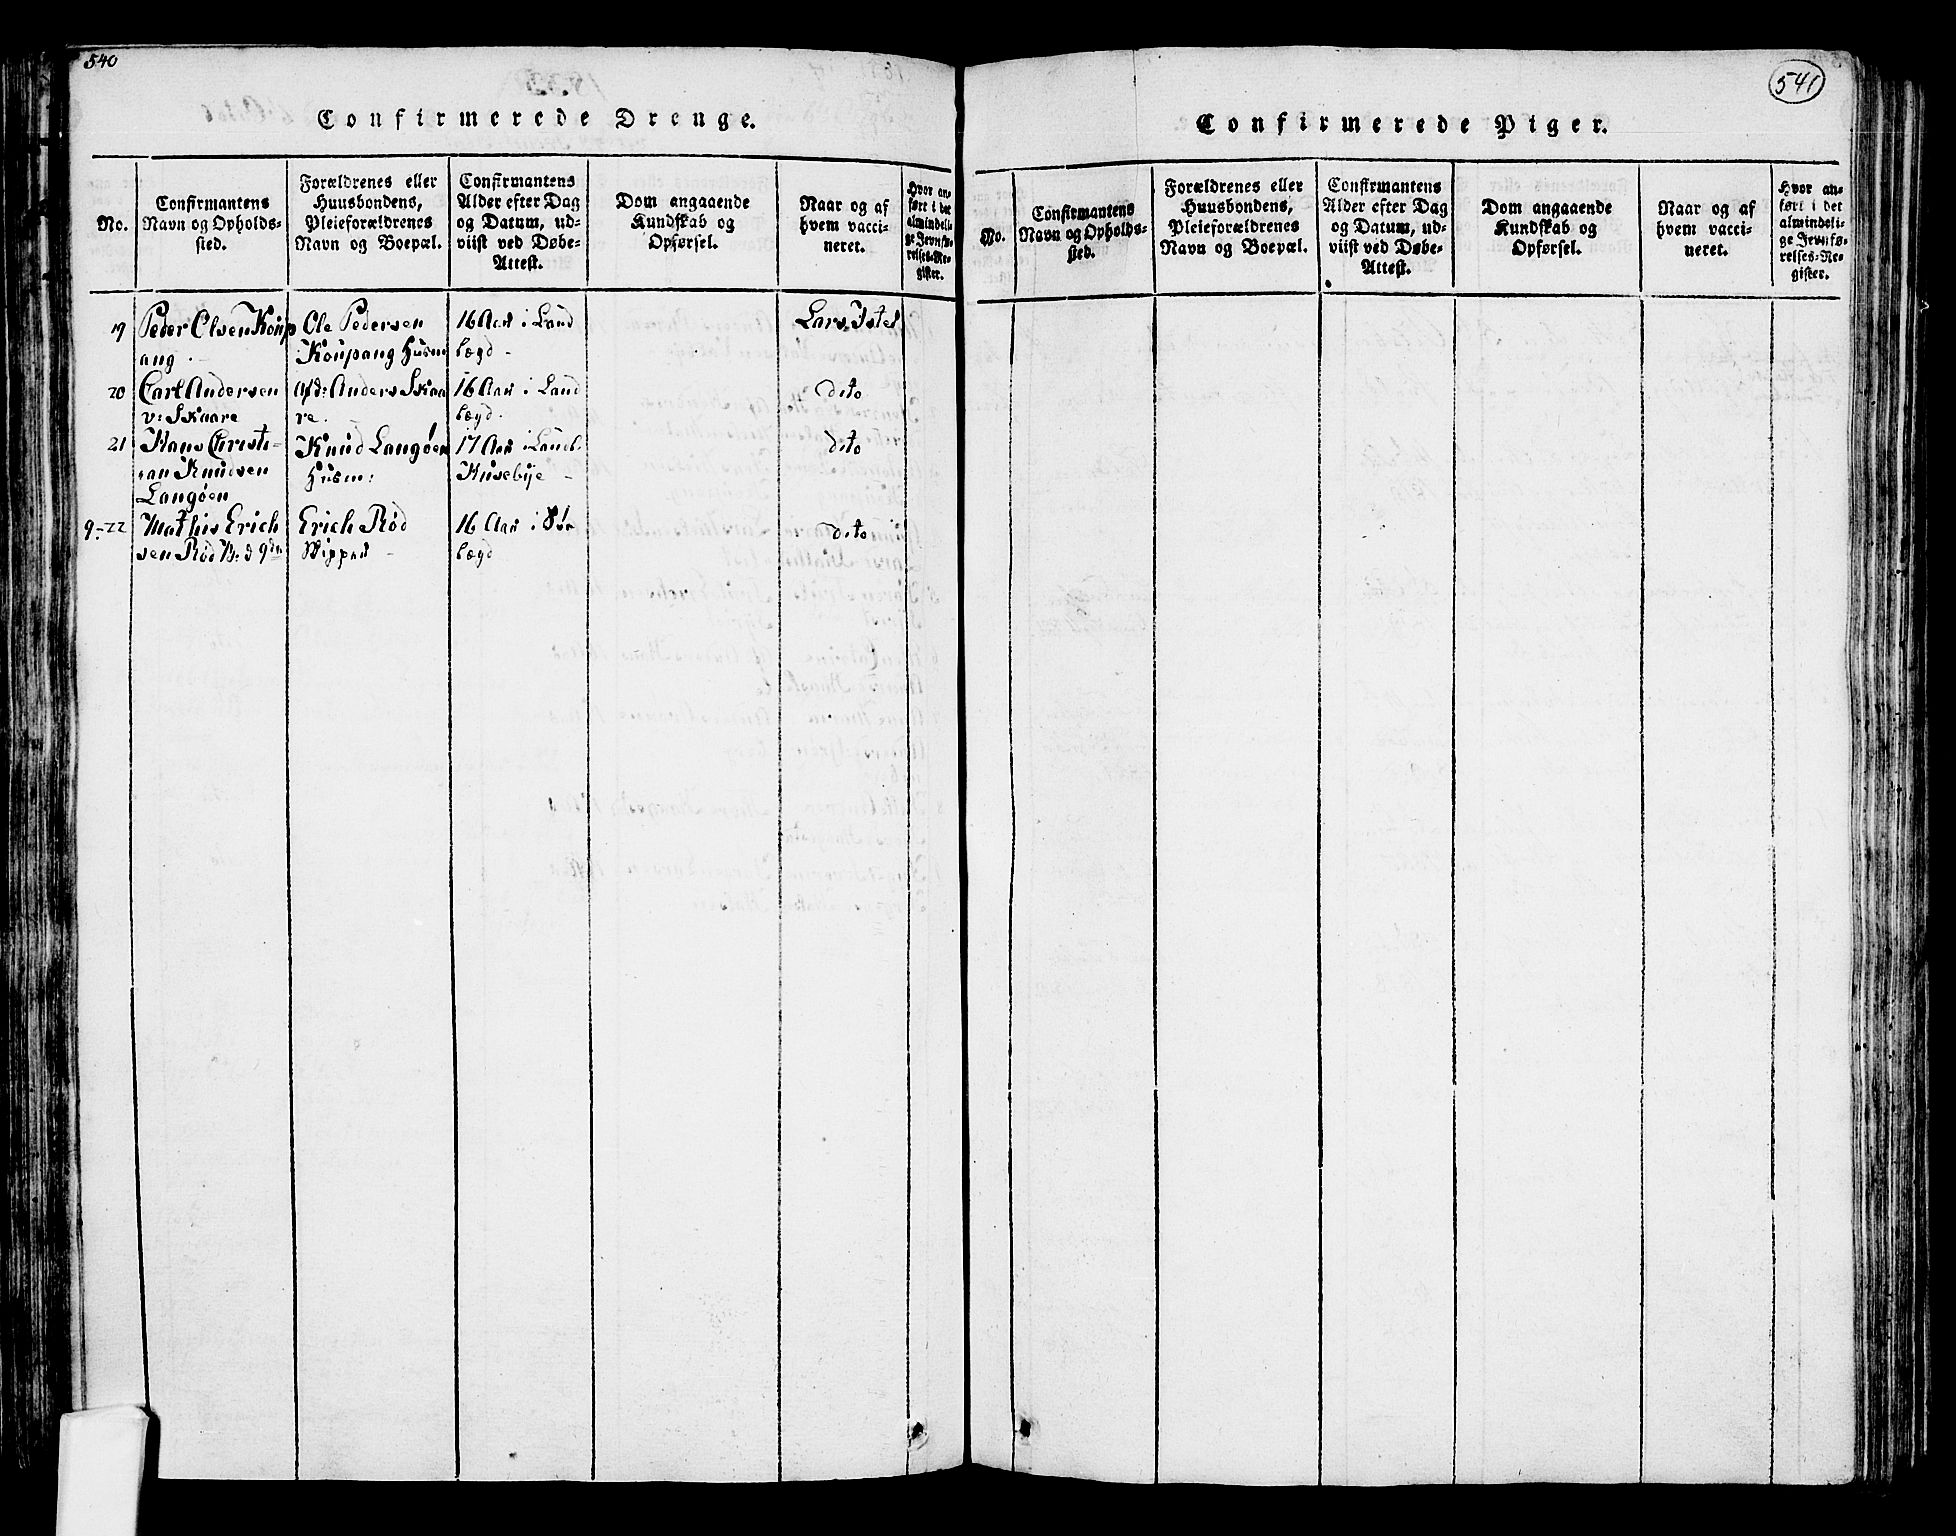 540
Confirmerede Drenge.
No.
Confirmantens
Navn og Opholds-
sted.
Forældrenes eller
Huusbondens,
Pleieforældrenes
Navn og Boepæl.
Confirmantens
Alder efter Dag
og Datum, ud-
viist ved Døbe-
Attest.
Dom angaaende
Kundskab og
Opførsel.
Naar og af
hvem vacci-
neret.
Hvor an-
ført i det
almindeli-
ge Jevnfø-
relses-Re-
gister.
19 Peder Olsen Koup Ole Pedersen 16 Aar i Land Lars Istes
ang. Koupang Husm lægd.
20 Carl Andersen Afd: Anders Skaa 16 Aar i Land dito
v: Skaare re. lægd.
21 Hans Christi- Knud Langøen 17 Aar i Landl. dito
an Knudsen Husm: Husebye
Langøen
9-22 Mathis Erich Erich Rød 16 Aar i Sør dito
sen Rød lægd
541
Confirmerede Piger.
No.
Confirmantens
Navn og Opholds-
sted.
Forældrenes eller
Huusbondens,
Pleieforældrenes
Navn og Boepæl.
Confirmantens
Alder efter Dag
og Datum, ud-
viist ved Døbe-
Attest.
Dom angaaende
Kundskab og
Opførsel.
Naar og af
hvem vacci-
neret.
Hvor an-
ført i det
almindeli-
ge Jevnfø-
relses-Re-
gister.